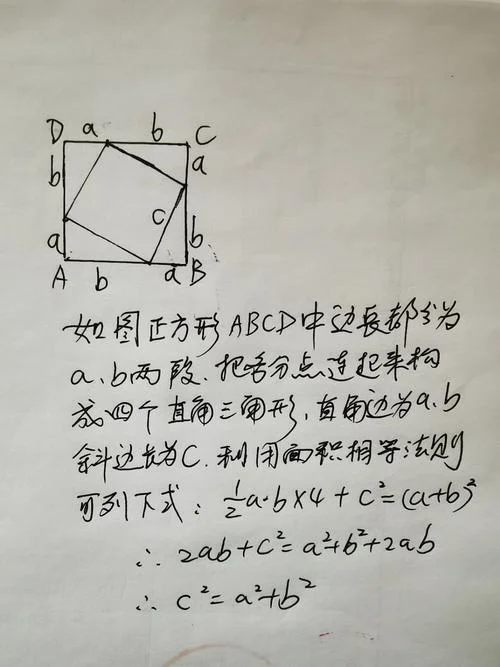 D a b C
b a
c
a b
A b a B
如图正方形ABCD中边长都分为
a、b两段.把各分点连起来构
成四个直角三角形,直角边为a、b
斜边长为C.利用面积相等法则
可列下式: ½a·b×4+c²=(a+b)²
∴ 2ab+c²=a²+b²+2ab
∴ c²=a²+b²